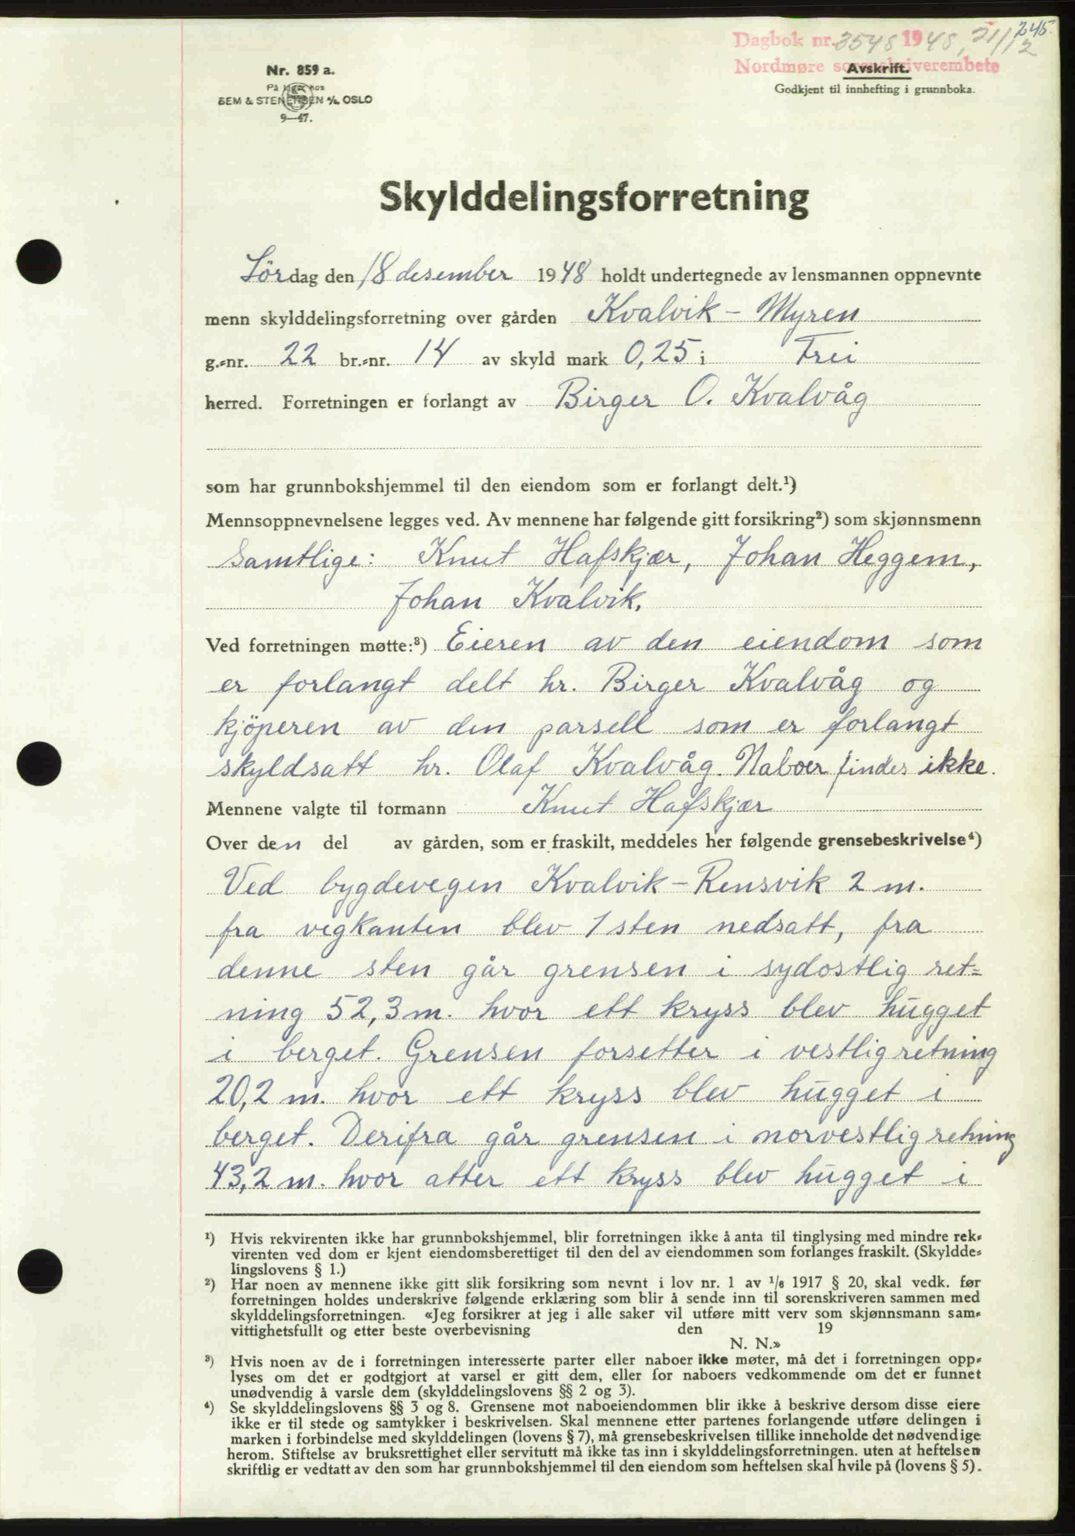 245.
Dagbok nr. 3548 1948, 21/12
Nordmøre sorenskriverembete
Avskrift.
Godkjent til innhefting i grunnboka.
Nr. 859 a.
På lager hos
SEM & STENERSEN A/S OSLO
9—47.
Skylddelingsforretning
Lördag den 18 desember 1948 holdt undertegnede av lensmannen oppnevnte
menn skylddelingsforretning over gården Kvalvik - Myren
g.-nr. 22 br.-nr. 14 av skyld mark 0,25 i Frei
herred. Forretningen er forlangt av Birger O. Kvalvåg
som har grunnbokshjemmel til den eiendom som er forlangt delt.¹)
Mennsoppnevnelsene legges ved. Av mennene har følgende gitt forsikring²) som skjønnsmenn
Samtlige: Knut Hafskjær, Johan Heggem,
Johan Kvalvik.
Ved forretningen møtte:³) Eieren av den eiendom som
er forlangt delt hr. Birger Kvalvåg og
kjöperen av den parsell som er forlangt
skyldsatt hr. Olaf Kvalvåg. Naboer findes ikke.
Mennene valgte til formann Knut Hafskjær
Over den del av gården, som er fraskilt, meddeles her følgende grensebeskrivelse⁴)
Ved bygdevegen Kvalvik - Rensvik 2 m.
fra vegkanten blev 1 sten nedsatt, fra
denne sten går grensen i sydostlig ret=
ning 52,3 m. hvor ett kryss blev hugget
i berget. Grensen forsetter i vestlig retning
20,2 m. hvor ett kryss blev hugget i
berget. Derifra går grensen i norvestlig retning
43,2 m. hvor atter ett kryss blev hugget i
¹) Hvis rekvirenten ikke har grunnbokshjemmel, blir forretningen ikke å anta til tinglysing med mindre rek-
virenten ved dom er kjent eiendomsberettiget til den del av eiendommen som forlanges fraskilt. (Skyldde-
lingslovens § 1.)
²) Har noen av mennene ikke gitt slik forsikring som nevnt i lov nr. 1 av 1/6 1917 § 20, skal vedk. før
forretningen holdes underskrive følgende erklæring som blir å sende inn til sorenskriveren sammen med
skylddelingsforretningen. «Jeg forsikrer at jeg i alle saker vil utføre mitt verv som skjønnsmann sam-
vittighetsfullt og etter beste overbevisning den 19
N. N.»
³) Hvis noen av de i forretningen interesserte parter eller naboer ikke møter, må det i forretningen opp-
lyses om det er godtgjort at varsel er gitt dem, eller for naboers vedkommende om det er funnet
unødvendig å varsle dem (skylddelingslovens §§ 2 og 3).
⁴) Se skylddelingslovens §§ 3 og 8. Grensene mot naboeiendommen blir ikke å beskrive dersom disse eiere
ikke er til stede og samtykker i beskrivelsen. Skal mennene etter partenes forlangende utføre delingen i
marken i forbindelse med skylddelingen (lovens § 7), må grensebeskrivelsen tillike inneholde det nødvendige
herom. Stiftelse av bruksrettighet eller servitutt må ikke tas inn i skylddelingsforretningen. uten at heftelsen
skriftlig er vedtatt av den som har grunnbokshjemmel til den eiendom som heftelsen skal hvile på (lovens § 5).